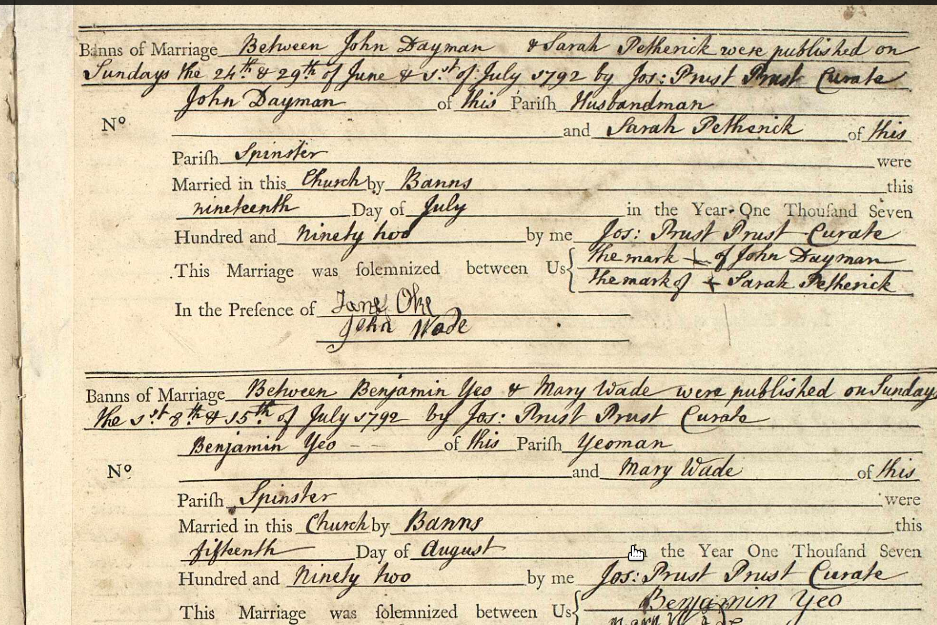 Banns of Marriage Between John Dayman & Sarah Petherick were published on
Sundays the 24th & 29th of June & 1st of July 1792 by Jos: Prust Prust Curate
John Dayman of this Parish Husbandman
No and Sarah Petherick of this
Parish Spinster were
Married in this Church by Banns this
nineteenth Day of July in the Year One Thousand Seven
Hundred and Ninety two by me Jos: Prust Prust Curate
This Marriage was solemnized between Us { the mark + of John Dayman
the mark of + Sarah Petherick
In the Presence of Jane Oke
John Wade
Banns of Marriage Between Benjamin Yeo & Mary Wade were published on Sundays
the 1st 8th & 15th of July 1792 by Jos: Prust Prust Curate
Benjamin Yeo of this Parish Yeoman
No and Mary Wade of this
Parish Spinster were
Married in this Church by Banns this
fifteenth Day of August in the Year One Thousand Seven
Hundred and Ninety two by me Jos: Prust Prust Curate
This Marriage was solemnized between Us { Benjamin Yeo